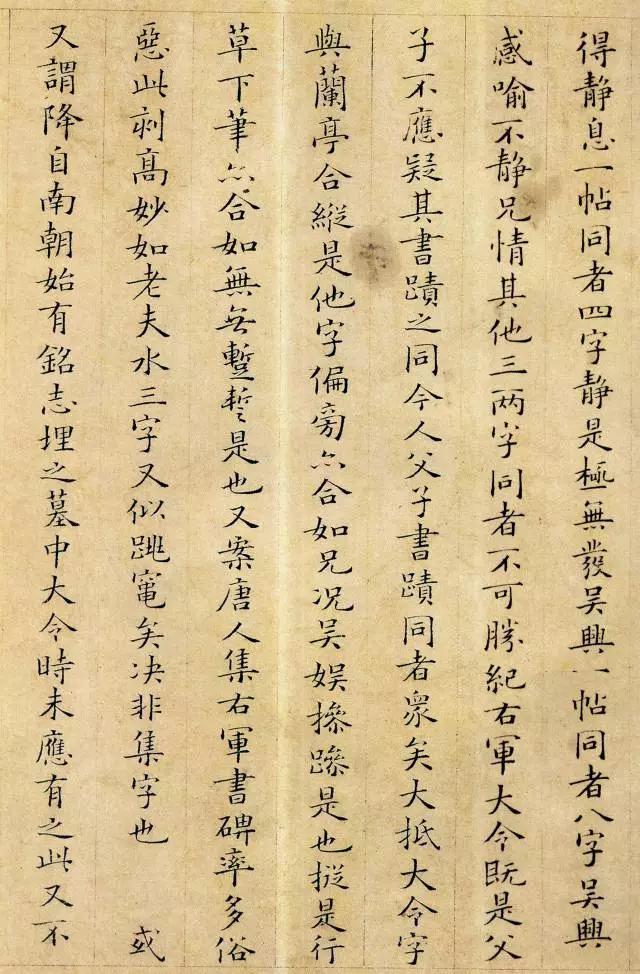 得静息一帖同者四字静是極無發吴興一帖同者八字吴興
感喻不静兄情其他三两字同者不可勝紀右軍大令既是父
子不應疑其書蹟之同今人父子書蹟同者衆矣大抵大令字
與蘭亭合縱是他字偏旁亦合如兄况吴娱摻蹤是也摐是行
草下筆亦合如無无蹔誓是也又案唐人集右軍書碑率多俗
惡此刻高妙如老夫水三字又似跳竃矣决非集字也 或
又謂降自南朝始有銘志埋之墓中大令時未應有之此又不